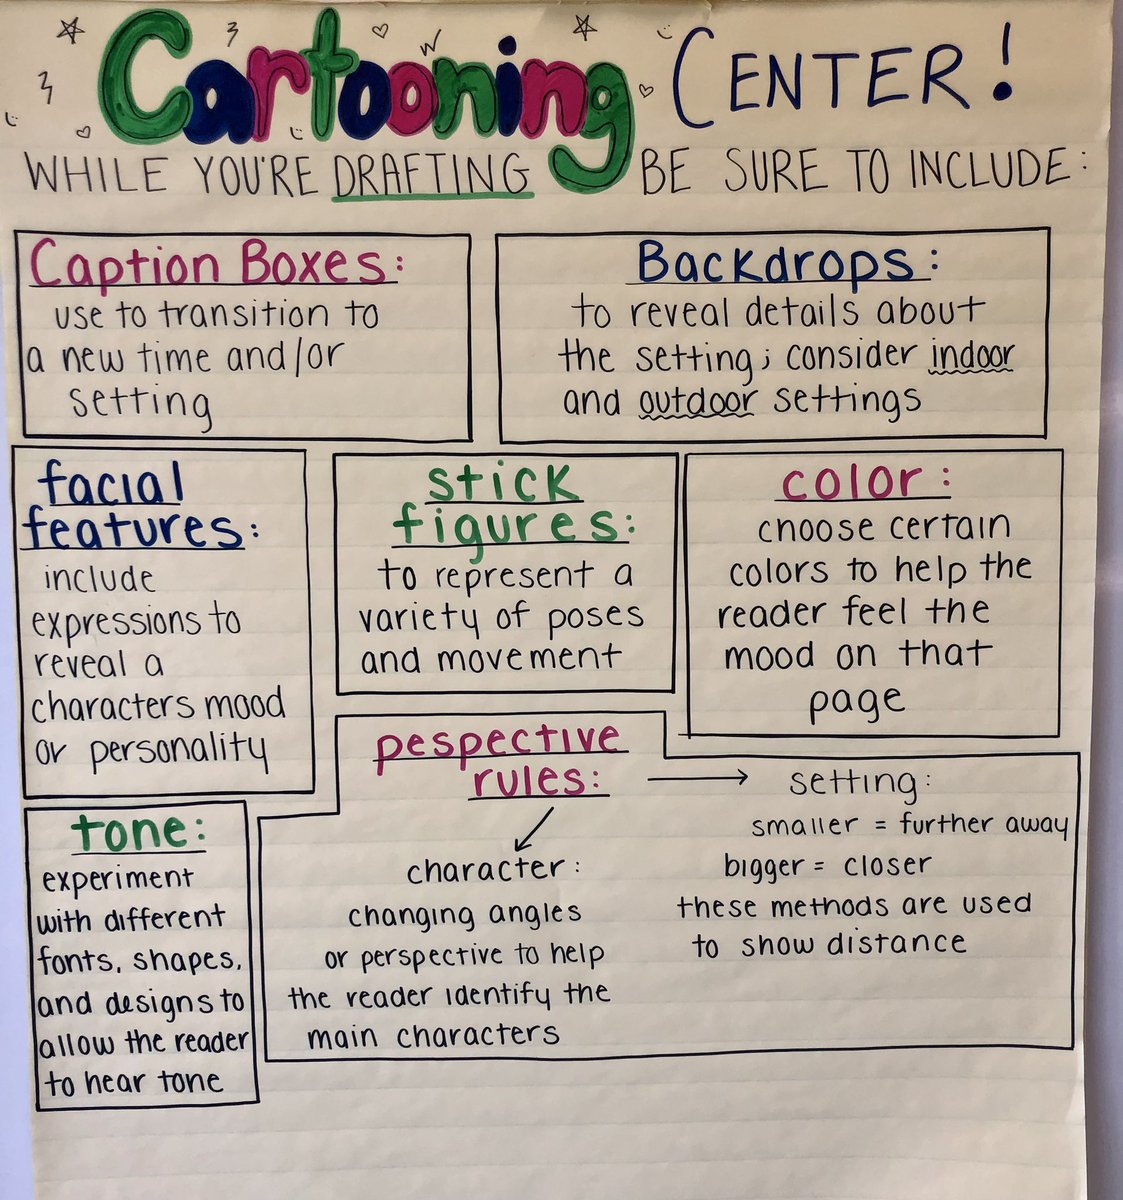 Cartooning CENTER!
WHILE YOU'RE DRAFTING BE SURE TO INCLUDE:
Caption Boxes:
use to transition to
a new time and/or
setting
Backdrops:
to reveal details about
the setting; consider indoor
and outdoor settings
facial
features:
include
expressions to
reveal a
characters mood
or personality
stick
figures:
to represent a
variety of poses
and movement
color:
choose certain
colors to help the
reader feel the
mood on that
page
tone:
experiment
with different
fonts, shapes,
and designs to
allow the reader
to hear tone
pespective
rules:
character:
changing angles
or perspective to help
the reader identify the
main characters
setting:
smaller = further away
bigger = closer
these methods are used
to show distance